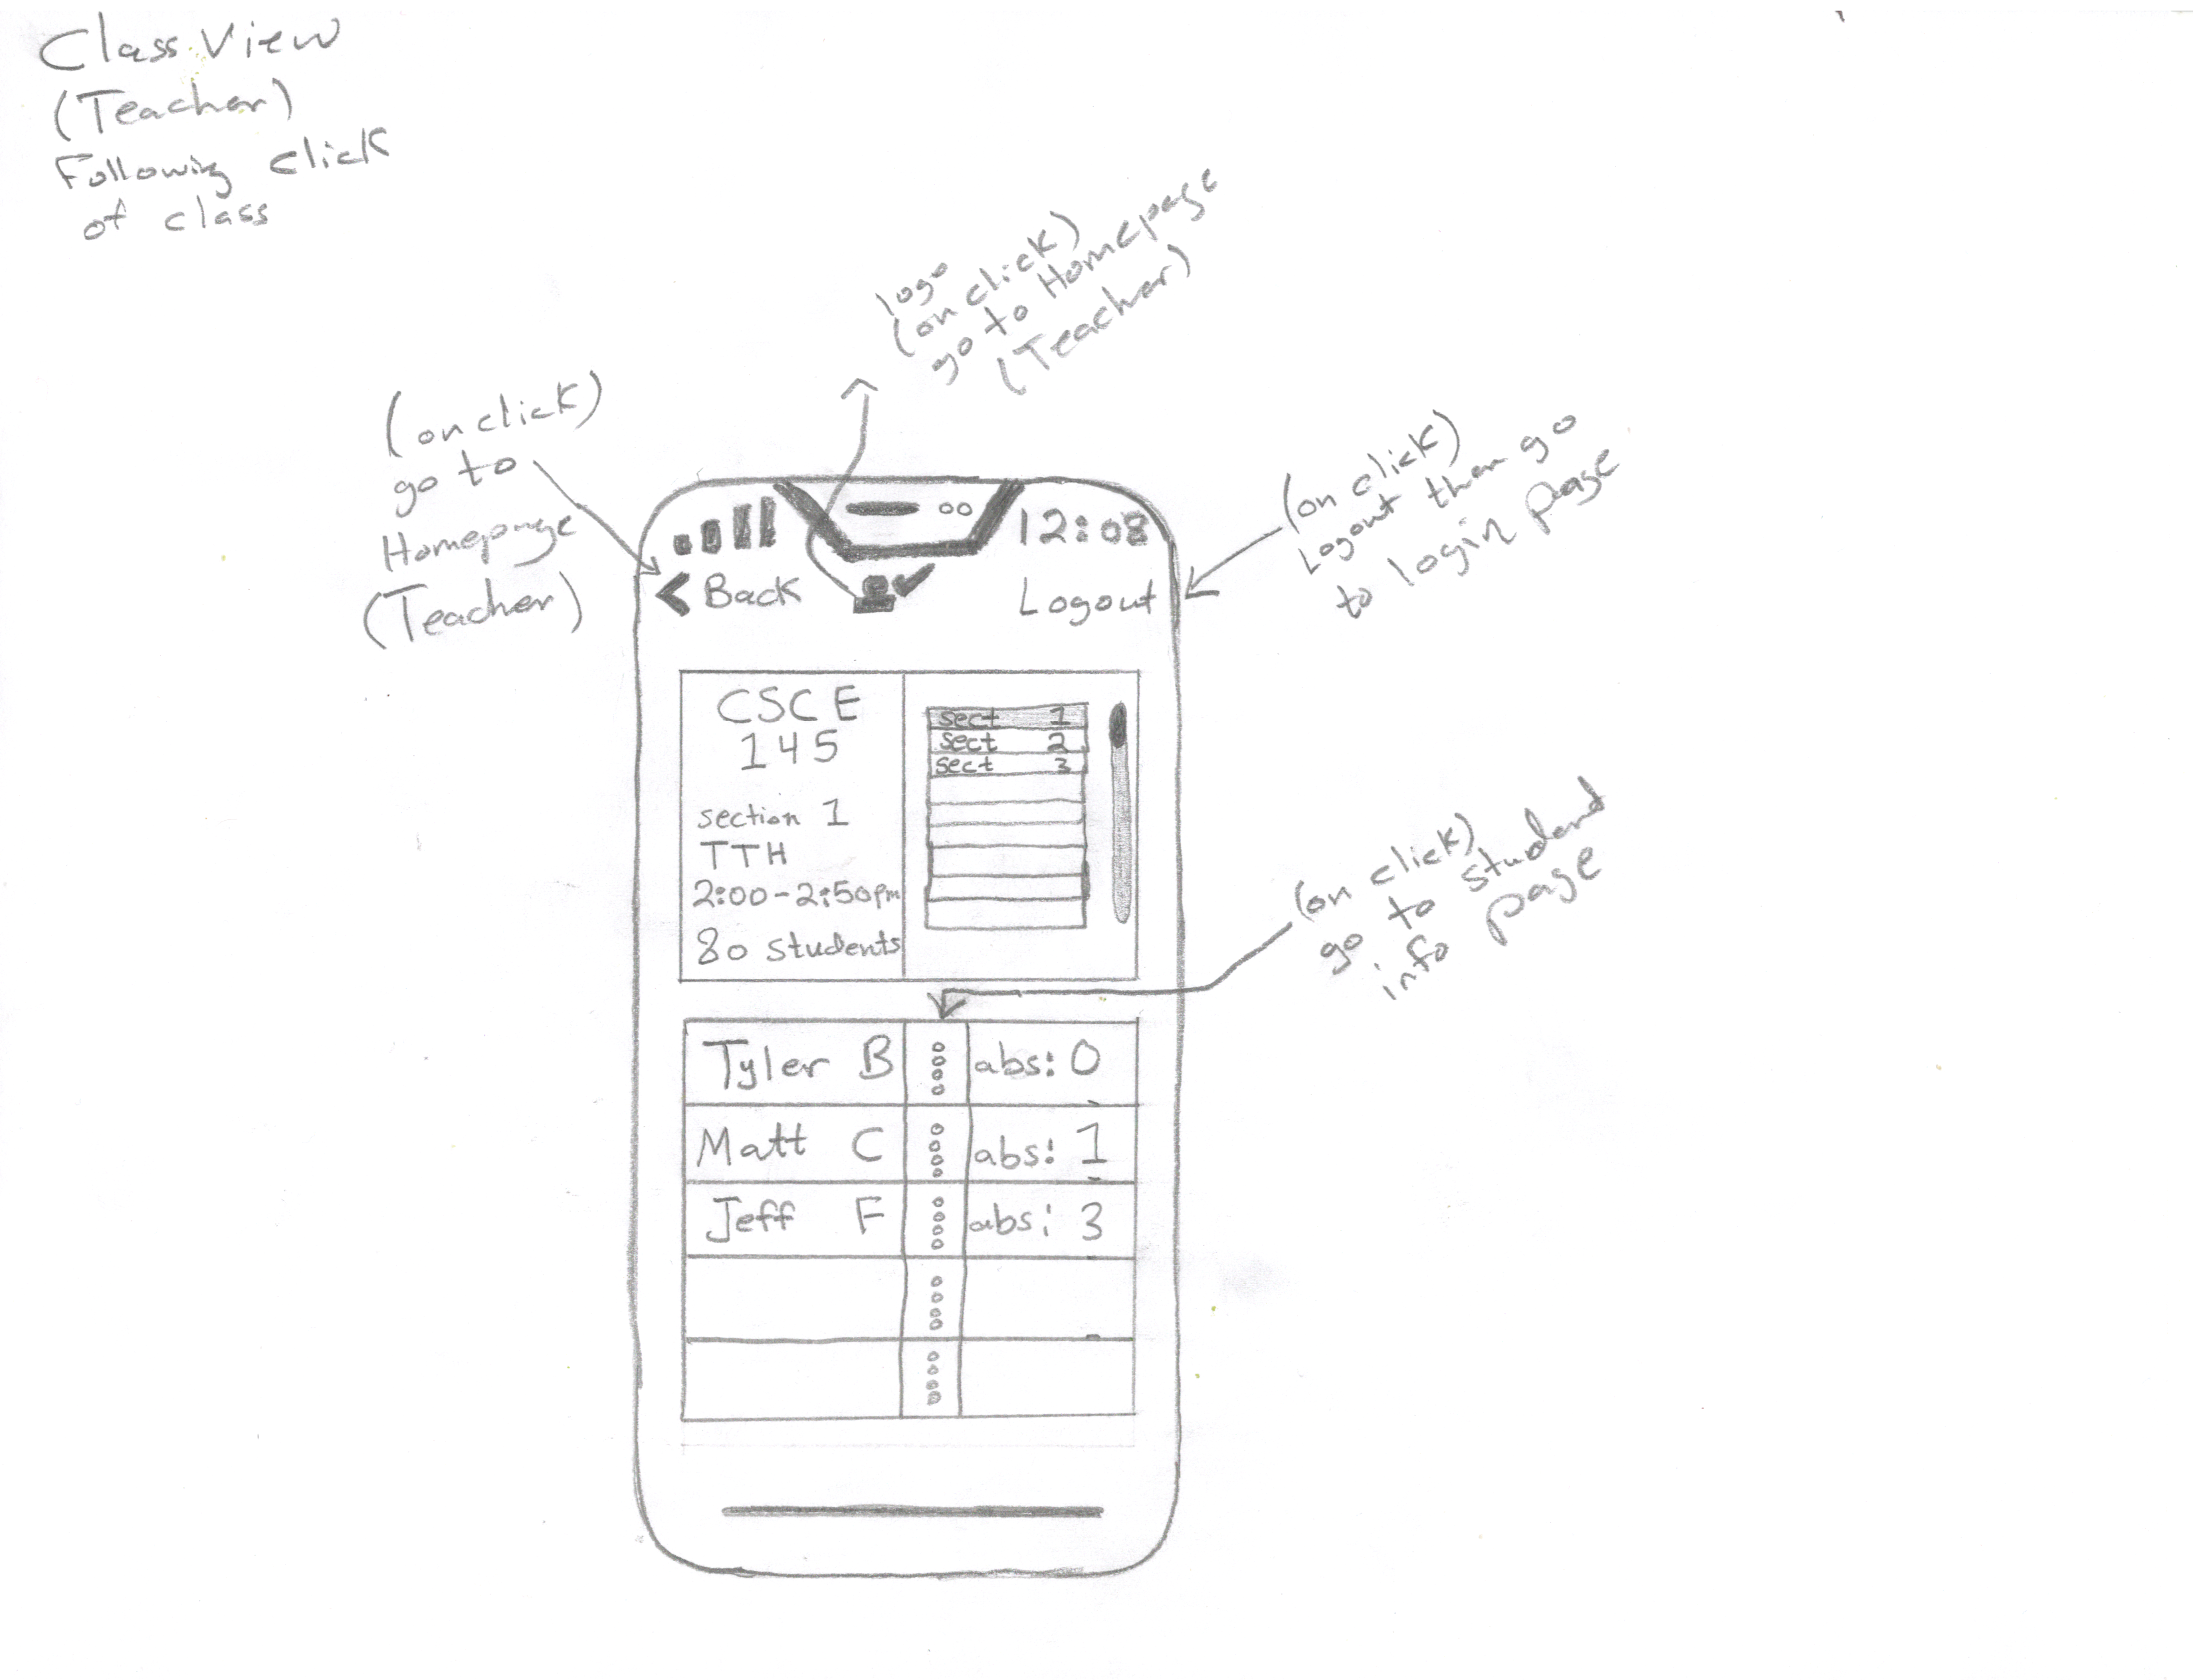 Class View
(Teacher)
Following click
of class
logo
(on click)
go to Homepage
(Teacher)
(on click)
go to
Homepage
(Teacher)
(on click)
Logout then go
to login page
12:08
< Back
Logout
CSCE
145
section 1
TTH
2:00-2:50pm
80 students
sect 1
sect 2
sect 3
(on click)
go to student
info page
Tyler B abs: 0
Matt C abs: 1
Jeff F abs: 3